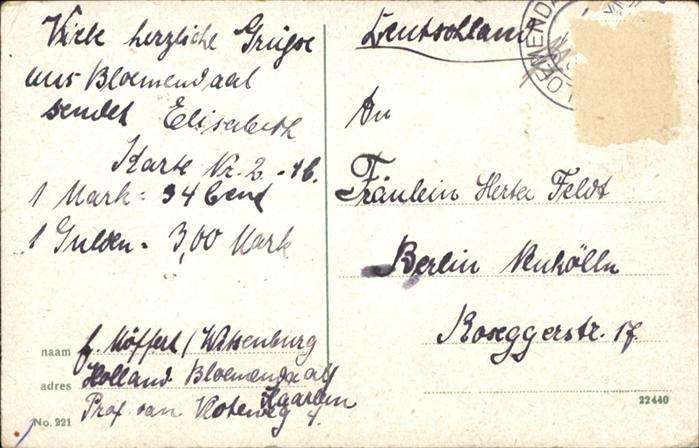 Viele herzliche Grüße
aus Bloemendaal
sendet Elisabeth
Karte Nr. 2.
1 Mark = 34 Cent
1 Gulden = 3,00 Mark
naam Möffert / Wissenburg
adres Holland Bloemendaal
Haarlem
Prof. van
No. 221
Deutschland
An
Fräulein Herta Feldt
Berlin Neukölln
Roseggerstr. 17.
22440